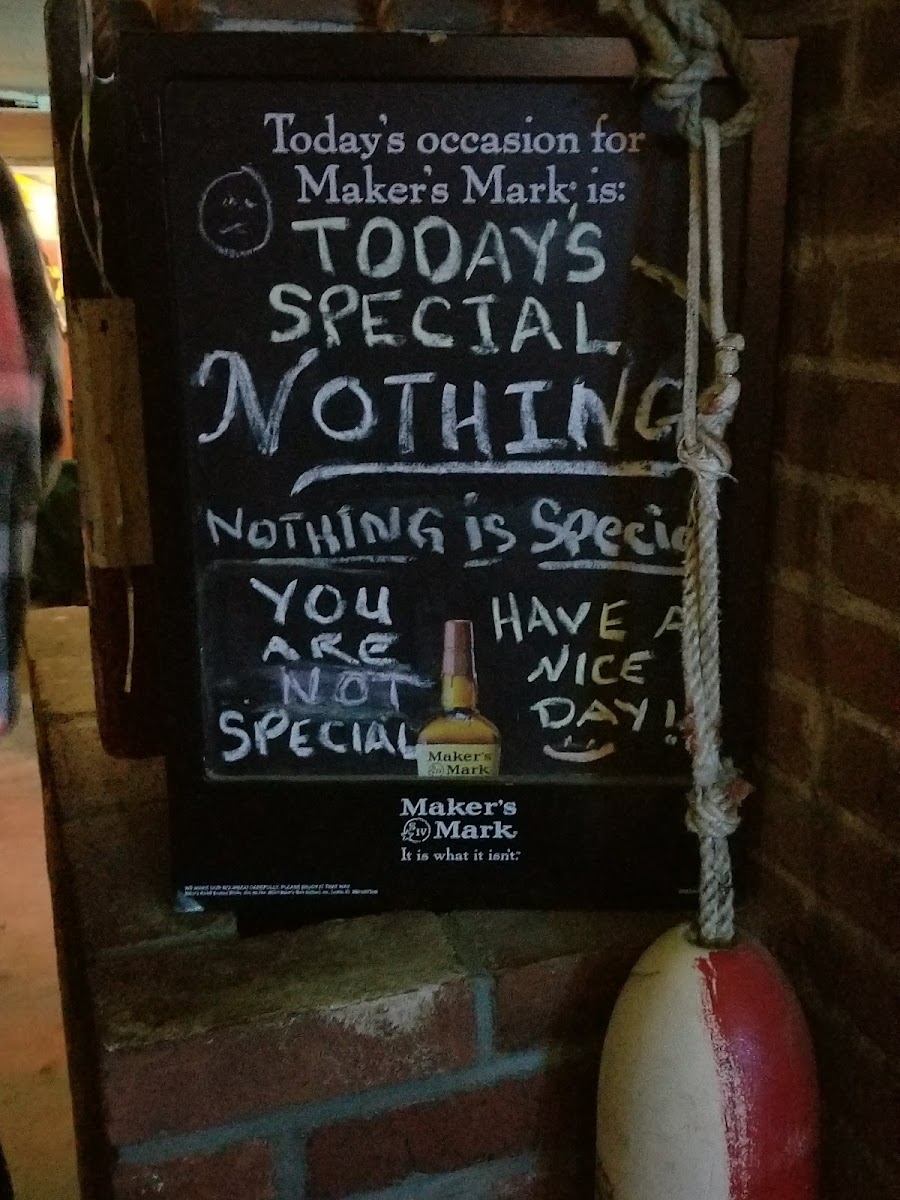 Today's occasion for
Maker's Mark® is:
TODAY'S
SPECIAL
NOTHING
NOTHING is Specia
YOU
ARE
NOT
SPECIAL
HAVE A
NICE
DAY!
Maker's
Mark
Maker's
SIV Mark
It is what it isn't.™